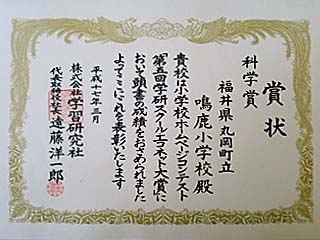 賞状
科学賞
福井県丸岡町立
鳴鹿小学校殿
貴校は小学校ホームページコンテスト
「第五回学研スクールエコネット大賞」に
おいて頭書の成績をおさめられました
よってここにこれを表彰いたします
平成十七年三月
株式会社学習研究社
代表取締役社長 遠藤洋一郎